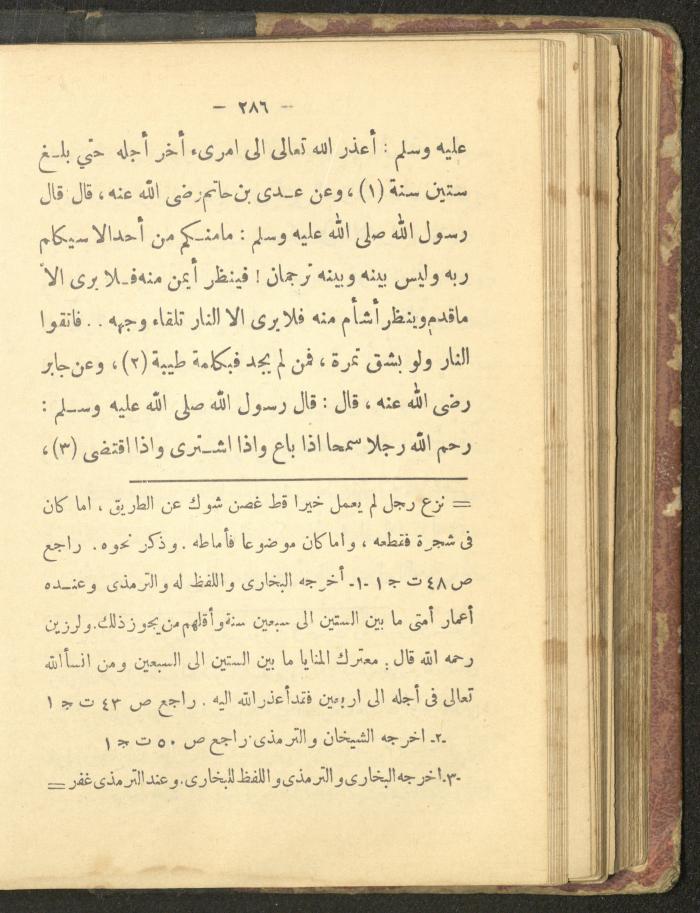 — ٢٨٦ —
عليه وسلم : أعذر الله تعالى الى امرىء أخر أجله حتي بلـغ
ستين سنة (١) ، وعن عـدى بن حاتم رضى الله عنه ، قال قال
رسول الله صلى الله عليه وسلم : مامنـكم من أحد الا سيكلم
ربه وليس بينه وبينه ترجمان ! فينظر أيمن منه فـلا يرى الا
ماقدم وينظر أشأم منه فلا يرى الا النار تلقاء وجهه . . فاتقوا
النار ولو بشق تمرة ، فمن لم يجد فبكلمة طيبة (٢) ، وعن جابر
رضى الله عنه ، قال : قال رسول الله صلى الله عليه وسـلم :
رحم الله رجلا سمحا اذا باع واذا اشـترى واذا اقتضى (٣) ،
= نزع رجل لم يعمل خيرا قط غصن شوك عن الطريق ، اما كان
فى شجرة فقطعه ، واما كان موضوعا فأماطه . وذكر نحوه . راجع
ص ٤٨ ت ج ١ -١- أخرجه البخارى واللفظ له والترمذى وعنـده
أعمار أمتى ما بين الستين الى سبعين سنة وأقلهم من يجوز ذلك. ولرزين
رحمه الله قال : معترك المنايا ما بين الستين الى السبعين ومن انسأ الله
تعالى فى أجله الى اربعين فقد أعذر الله اليه . راجع ص ٤٣ ت ج ١
-٢- اخرجه الشيخان والترمذى. راجع ص ٥٠ ت ج ١
-٣- اخرجه البخارى والترمذى واللفظ للبخارى. وعند الترمذى غفر =